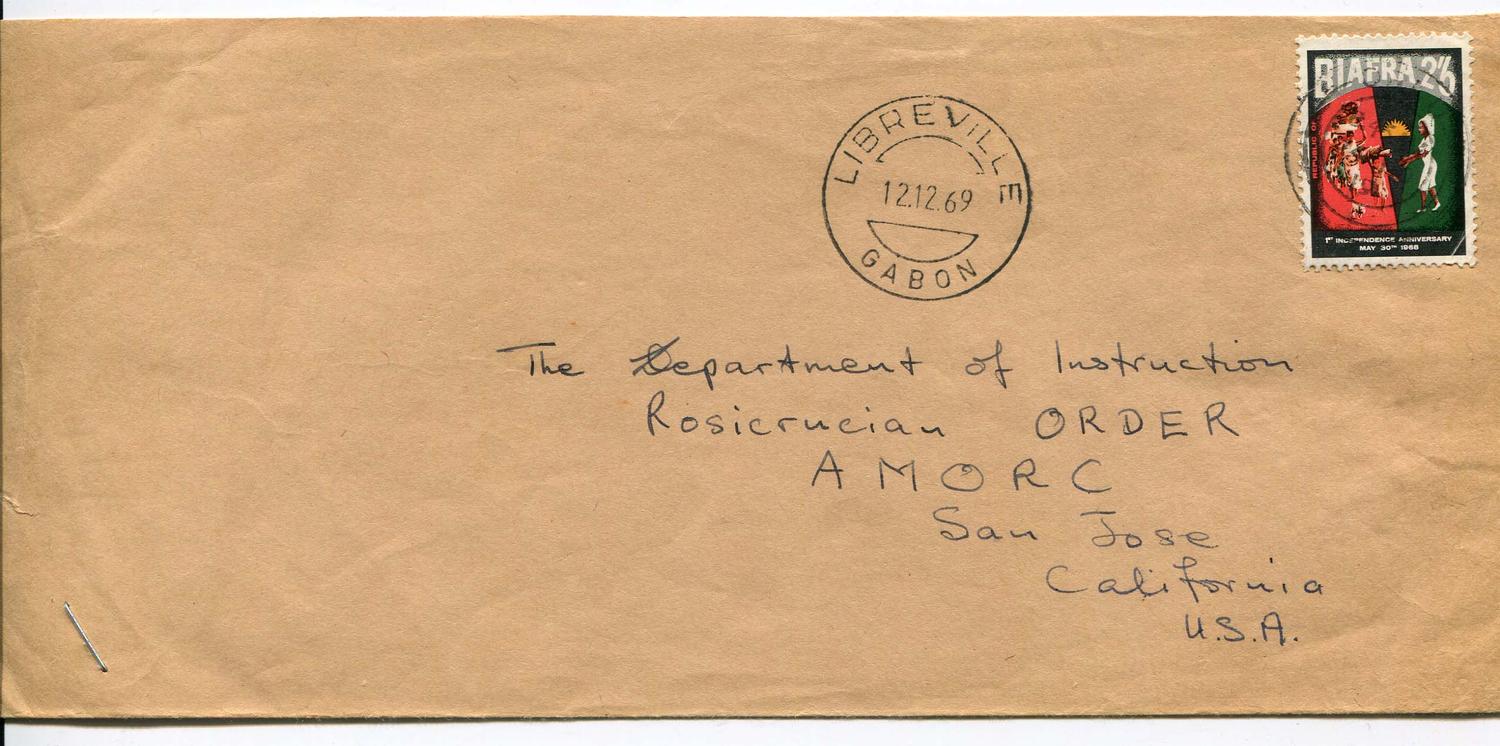 BIAFRA 2/6
REPUBLIC OF
1ST INDEPENDENCE ANNIVERSARY
MAY 30TH 1968
LIBREVILLE
12.12.69
GABON
The Department of Instruction
Rosicrucian ORDER
AMORC
San Jose
California
U.S.A.